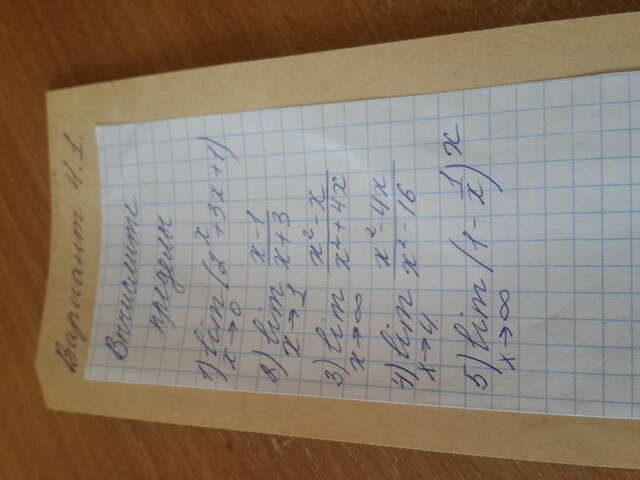 Вариант 4.1.
Вычислите
пределы
1) lim (2^x + 3x + 1)
x→0
2) lim (x-1)/(x+3)
x→1
3) lim (x²-x)/(x²+4x)
x→∞
4) lim (x²-4x)/(x²-16)
x→4
5) lim (1 - 1/x)^x
x→∞